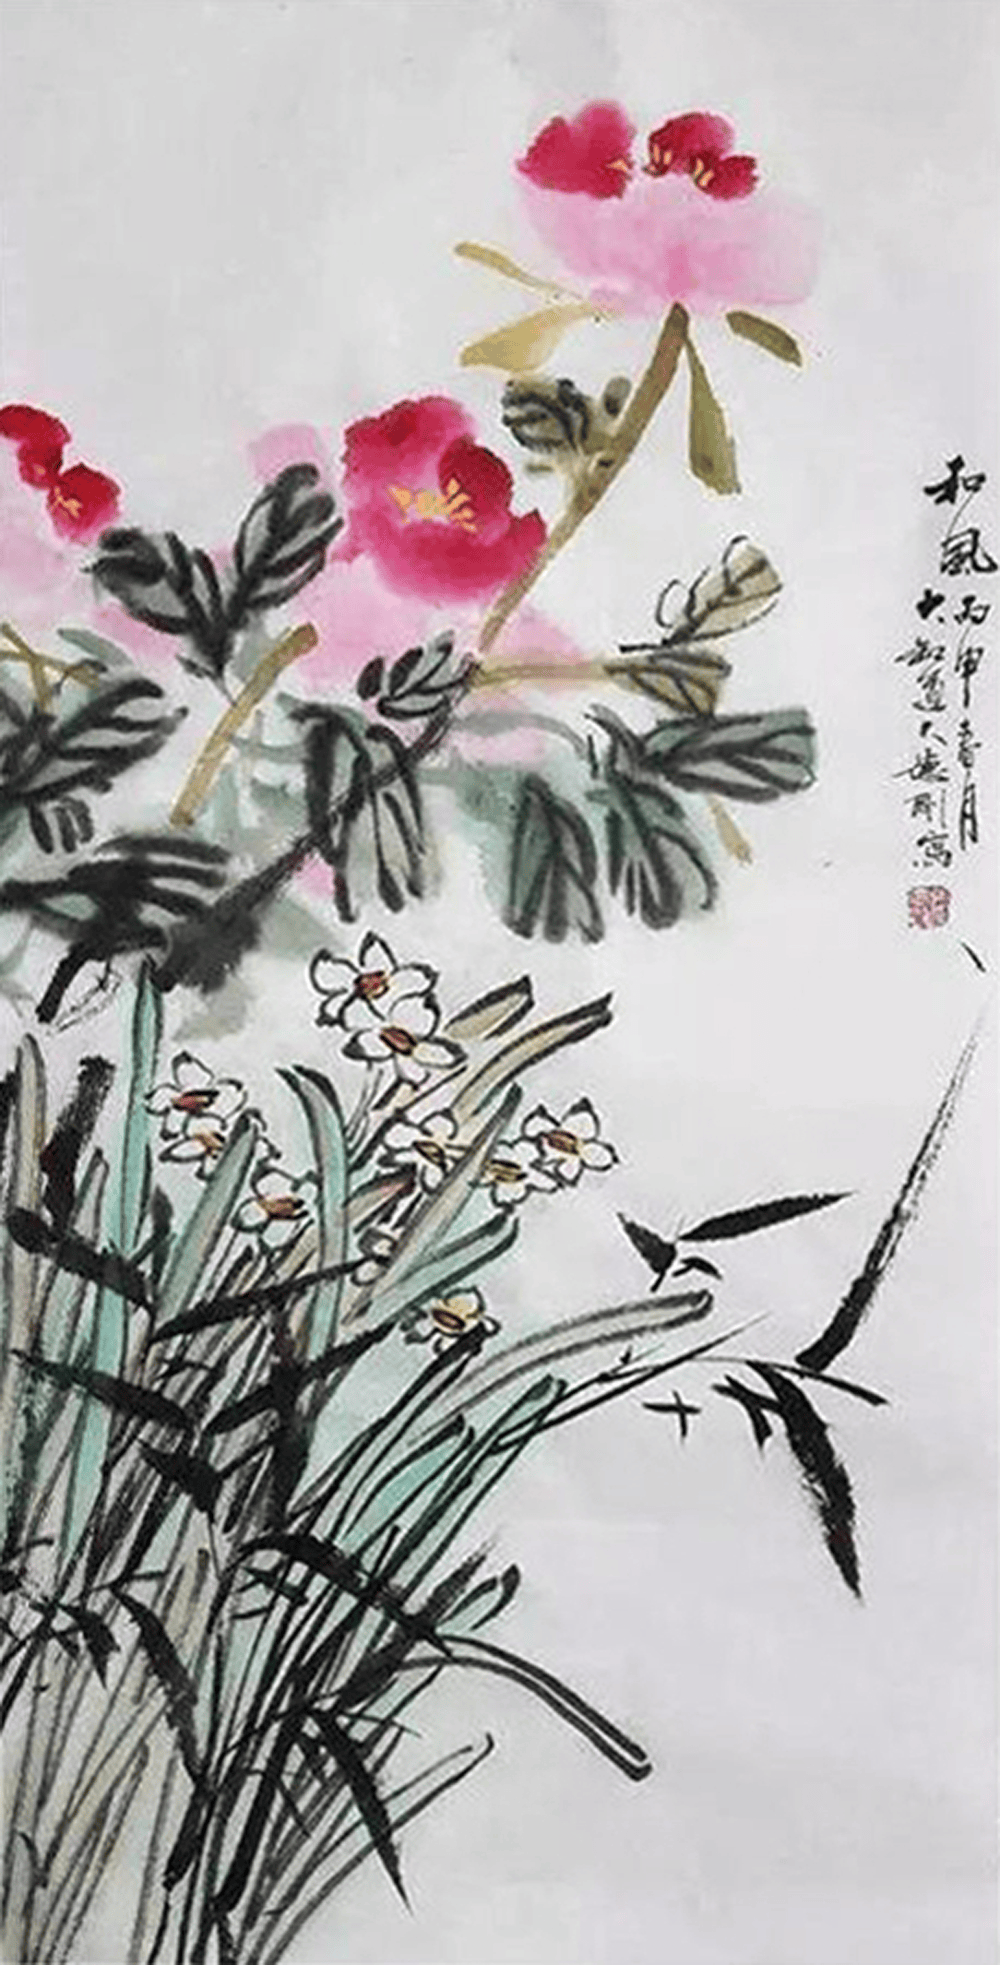 和風丙申春月
大道人德剛寫